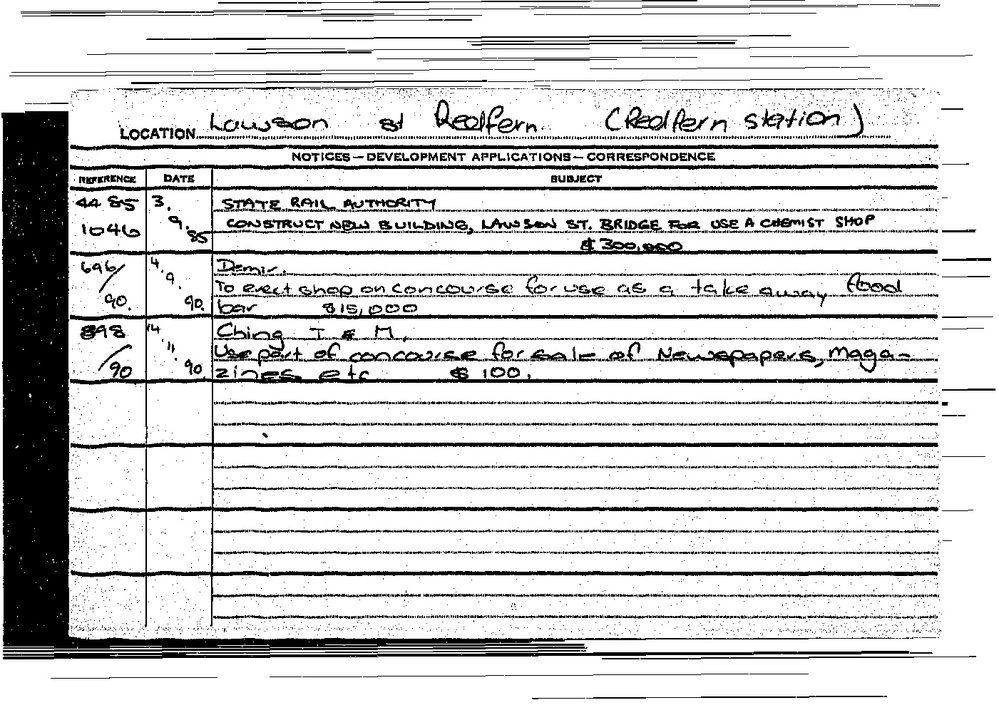 LOCATION Lawson st Redfern. (Redfern station)
NOTICES — DEVELOPMENT APPLICATIONS — CORRESPONDENCE
REFERENCE DATE SUBJECT
44 85 3. STATE RAIL AUTHORITY
1046 9. 85 CONSTRUCT NEW BUILDING, LAWSON ST. BRIDGE FOR USE A CHEMIST SHOP
$ 300,000
696/ 4. Demir.
9. To erect shop on concourse for use as a take away food
90. 90. bar $15,000
898 14. Ching T & M.
11. Use part of concourse for sale of Newspapers, Maga-
/90 90. zines etc $ 100.